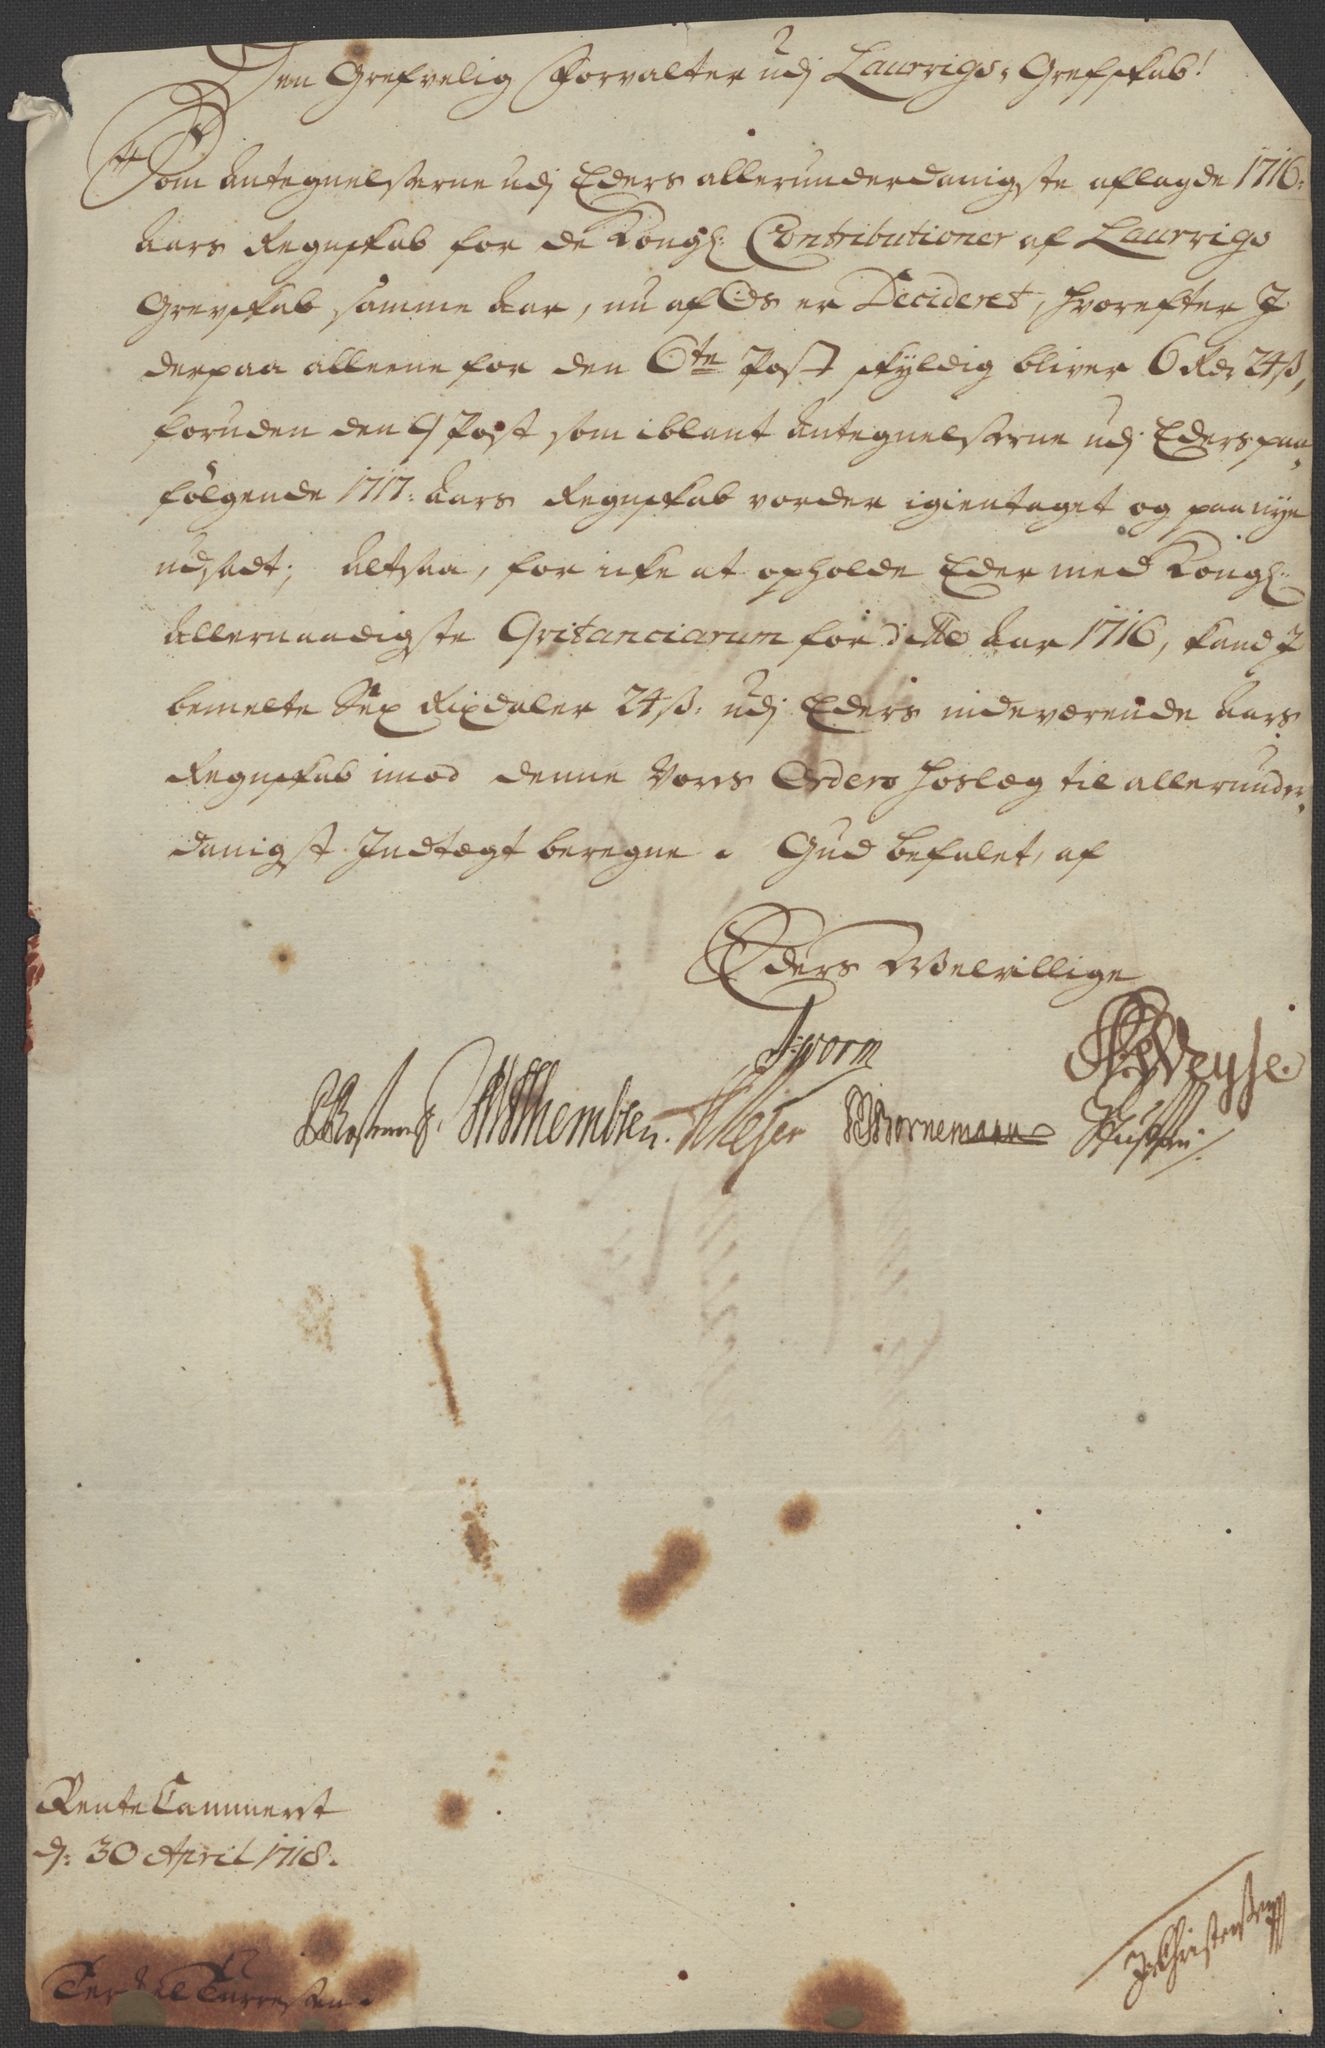 Den Grefvelig Forvalter udj Laurvigs, Grefskab!
Som Antegnelserne udj Eders allerunderdanigste aflagde 1716:
Aars Regnskab for de Kongl: Contributioner af Laurvigs
Grevskab samme Aar, nu af Os er Decideret, hvorefter I
derpaa alleene for den 6te Post skyldig bliver 6 Rdr 24 ß,
foruden den 9 Post som iblant Antegnelserne udj Eders paa,
følgende 1717: Aars Regnskab vorder igientaget og paa nye
udsadt; Altsaa, for icke at opholde Eder med Kongl:
Allernaadigste Qvitanciarum for ditto Aar 1716, kand I
bemelte Sex Rixdaler 24 ß: udj Eders indeværende Aars
Regnskab imod denne Vores Orders hoslæg til allerunder,
danigst Indtægt beregne. Gud befalet, af
Eders Welvillige
J: Worm
Weyse.
Themssen. Meyer Bornemann
Rente Cammeret
d: 30 April 1718.
J: Christensen